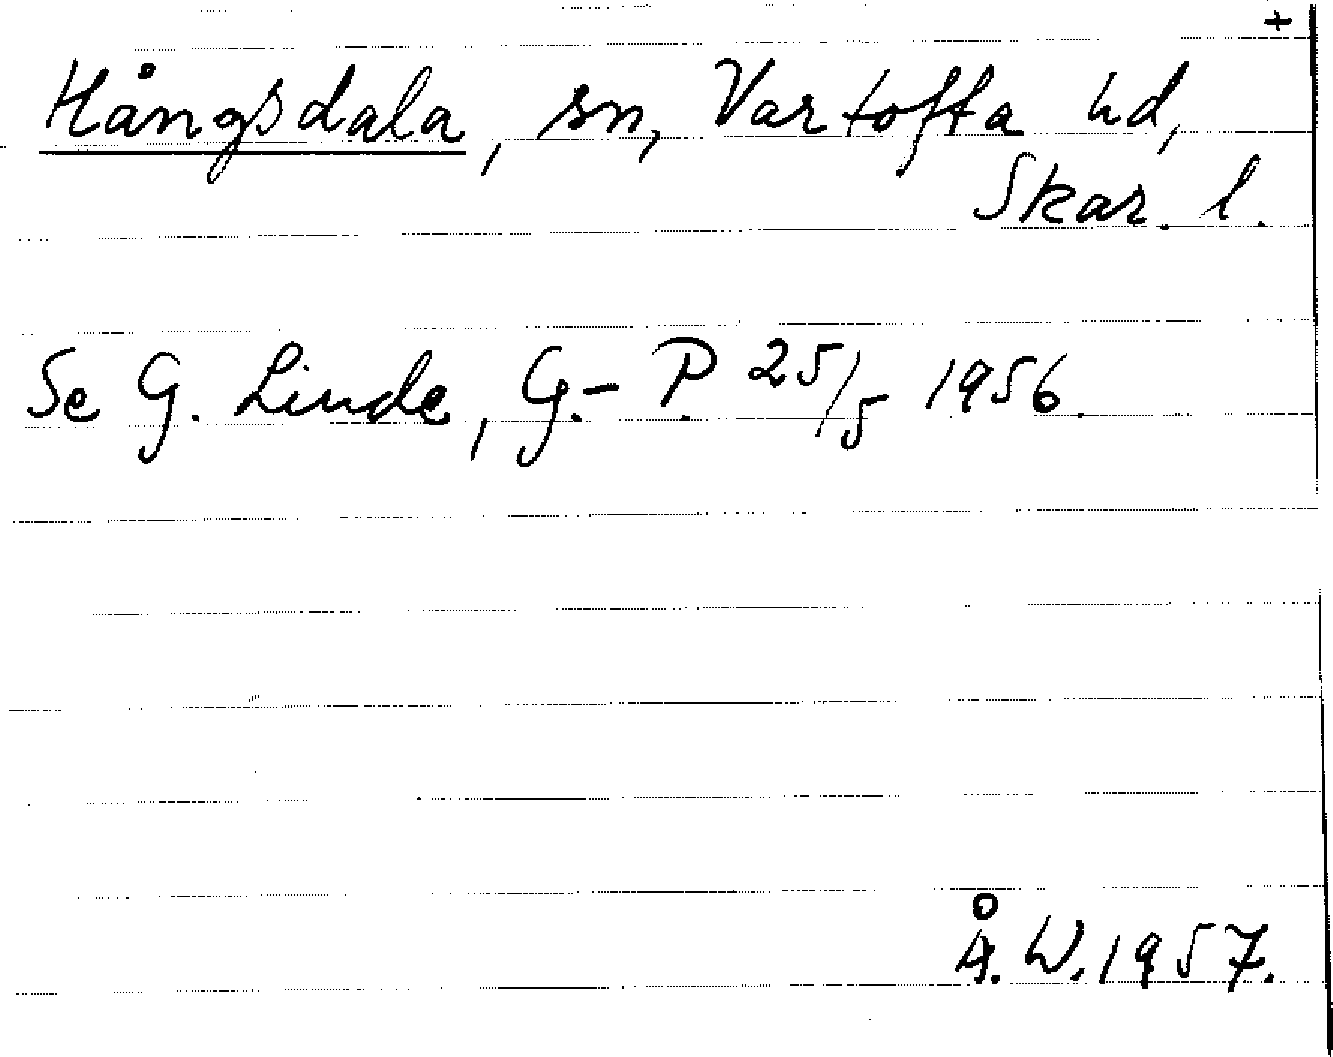 +
Hångsdala, sn, Vartofta hd,
Skar. l.
Se G. Linde, G.-P. 25/5 1956.
Å. W. 1957.